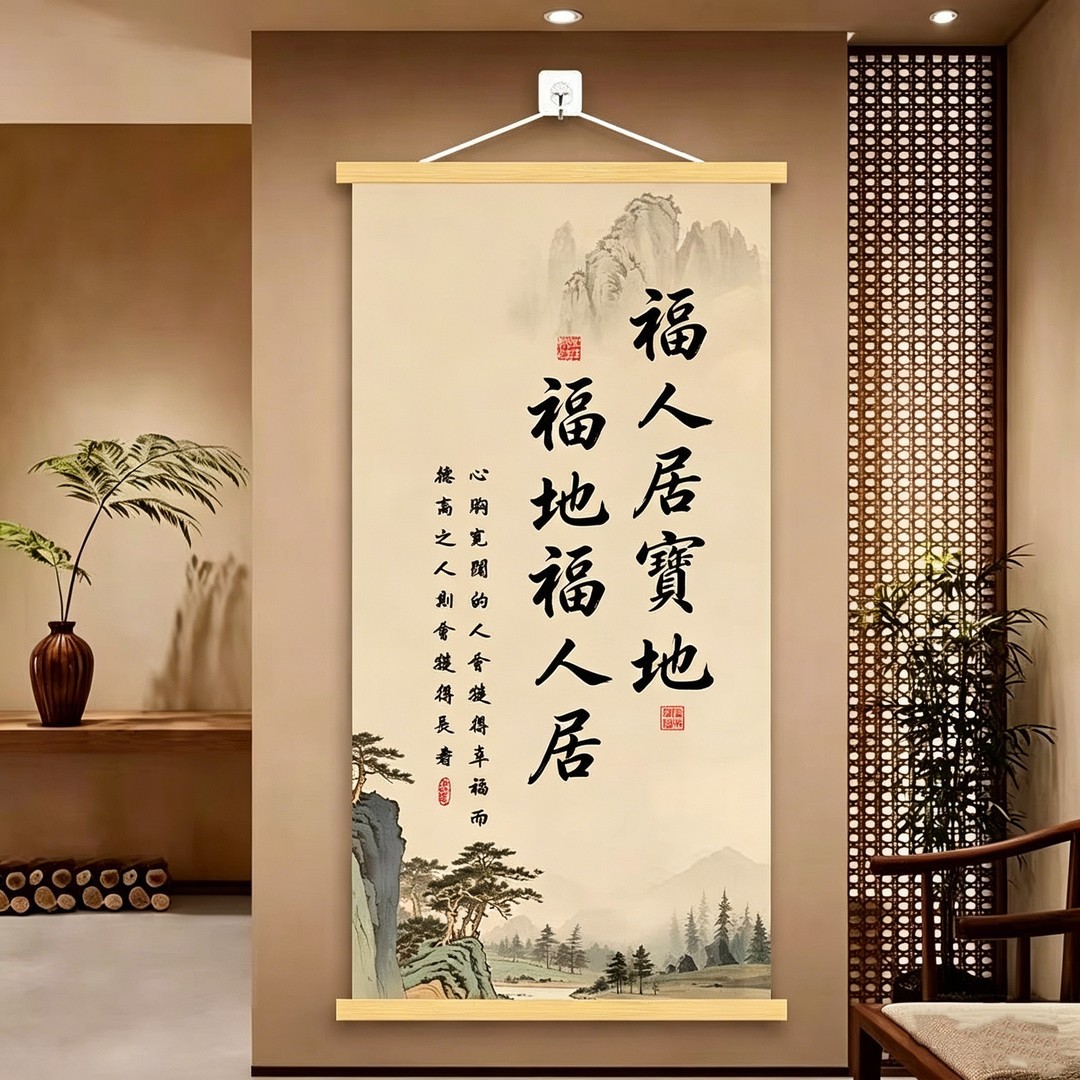 福人居寶地
福地福人居
心胸寬闊的人會獲得幸福而
德高之人則會獲得長壽